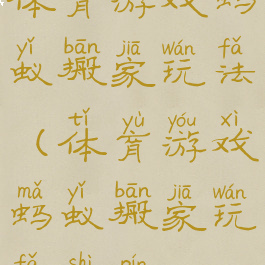 体育游戏蚂
yǐ bān jiā wán fǎ
蚁搬家玩法
tǐ yù yóu xì
(体育游戏
mǎ yǐ bān jiā wán
蚂蚁搬家玩
fǎ shì pín